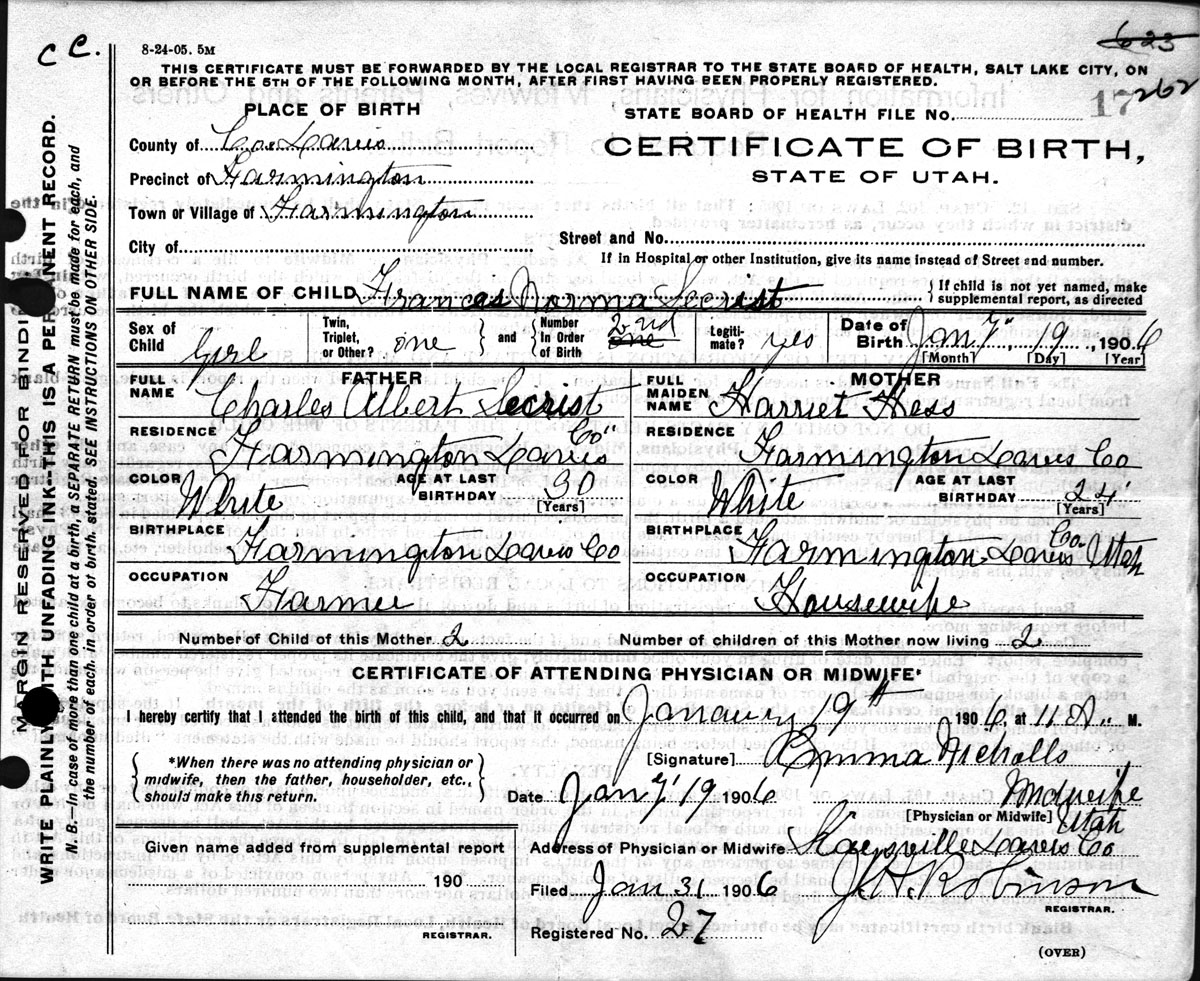 C C.
8-24-05. 5M
623
THIS CERTIFICATE MUST BE FORWARDED BY THE LOCAL REGISTRAR TO THE STATE BOARD OF HEALTH, SALT LAKE CITY, ON
OR BEFORE THE 5TH OF THE FOLLOWING MONTH, AFTER FIRST HAVING BEEN PROPERLY REGISTERED.
PLACE OF BIRTH
STATE BOARD OF HEALTH FILE NO. 17 262
County of Co Davis
CERTIFICATE OF BIRTH,
Precinct of Farmington
STATE OF UTAH.
Town or Village of Farmington
City of
Street and No.
If in Hospital or other Institution, give its name instead of Street and number.
FULL NAME OF CHILD Francis Norma Secrist { If child is not yet named, make
supplemental report, as directed
Sex of Child Girl Twin, Triplet, or Other? one } and { Number In Order of Birth one 2nd Legiti-mate? yes Date of Birth Jany 19, 1906
[Month] [Day] [Year]
FATHER MOTHER
FULL NAME Charles Albert Secrist FULL MAIDEN NAME Harriet Hess
RESIDENCE Farmington Davis Co RESIDENCE Farmington Davis Co
COLOR White AGE AT LAST BIRTHDAY 30 [Years] COLOR White AGE AT LAST BIRTHDAY 24 [Years]
BIRTHPLACE Farmington Davis Co BIRTHPLACE Farmington Davis Co. Utah
OCCUPATION Farmer OCCUPATION Housewife
Number of Child of this Mother 2 Number of children of this Mother now living 2
CERTIFICATE OF ATTENDING PHYSICIAN OR MIDWIFE*
I hereby certify that I attended the birth of this child, and that it occurred on January 19th 1906, at 11 A. M.
*When there was no attending physician or
midwife, then the father, householder, etc.,
should make this return.
[Signature] Emma Nicholls
Date Jany 19 1906 Midwife
[Physician or Midwife]
Utah
Given name added from supplemental report
Address of Physician or Midwife Kaysville Davis Co
190
Filed Jan 31 1906 J. H. Robinson
REGISTRAR.
REGISTRAR.
Registered No. 27
(OVER)
MARGIN RESERVED FOR BINDING
WRITE PLAINLY WITH UNFADING INK--THIS IS A PERMANENT RECORD.
N. B.—In case of more than one child at a birth, a SEPARATE RETURN must be made for each, and
the number of each. in order of birth. stated. SEE INSTRUCTIONS ON OTHER SIDE.